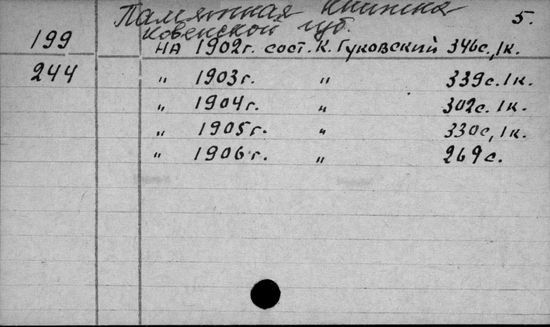 Памятная книжка 5.
Ковенской губ.
199 на 1902г. сост. К. Гуковский 346с, 1к.
244 " 1903г. " 339с. 1к.
" 1904г. " 302с. 1к.
" 1905г. " 330с, 1к.
" 1906г. " 269с.